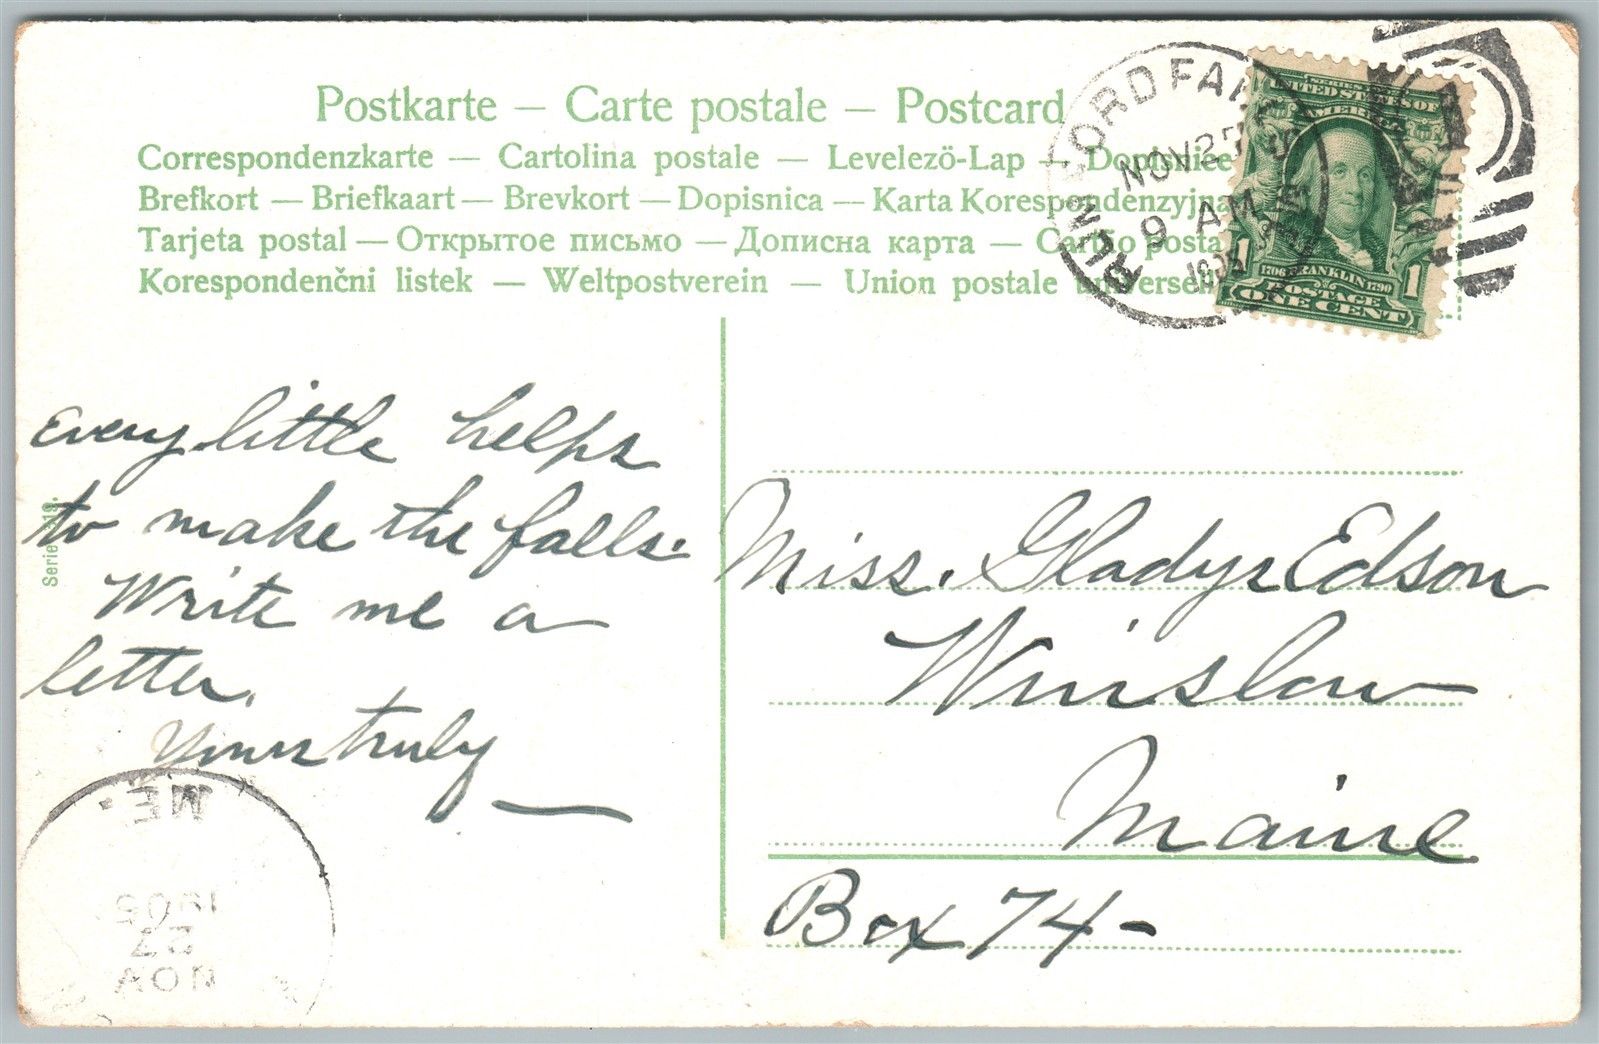 Postkarte — Carte postale — Postcard
Correspondenzkarte — Cartolina postale — Levelező-Lap — Dopisnice
Brefkort — Briefkaart — Brevkort — Dopisnica — Karta Korespondenzyjna
Tarjeta postal — Открытое письмо — Дописна карта — Cartão postal
Korespondenčni listek — Weltpostverein — Union postale universelle
RUMFORD FALLS
NOV 27
9 AM
1905
UNITED STATES OF
AMERICA
1 1
1706 FRANKLIN 1790
POSTAGE
ONE CENT
Every little helps
to make the falls.
Write me a
letter.
Yours truly —
Serie 218.
Miss. Gladys Edson
Winslow
Maine
Box 74 -
ME.
1905
27
NOV